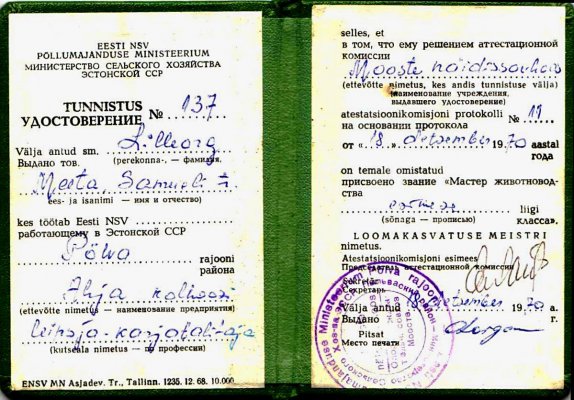 EESTI NSV
PÕLLUMAJANDUSE MINISTEERIUM
МИНИСТЕРСТВО СЕЛЬСКОГО ХОЗЯЙСТВА
ЭСТОНСКОЙ ССР
TUNNISTUS
УДОСТОВЕРЕНИЕ № 137
Välja antud sm. Lilleorg
Выдано тов. (perekonna-, — фамилия,
Meeta, Samueli t.
ees- ja isanimi — имя и отчество)
kes töötab Eesti NSV
работающему в Эстонской ССР
Põlva rajooni
района
Ahja kolhoosi
(ettevõtte nimetus — наименование предприятия)
leihoja karjatalitaja
(kutseala nimetus — по профессии)
ENSV MN Asjadev. Tr., Tallinn. 1235. 12. 68. 10.000
selles, et
в том, что ему решением аттестационной
комиссии
Mooste näidissovhoos
(ettevõtte nimetus, kes andis tunnistuse välja)
(наименование учреждения,
выдавшего удостоверение)
atestatsioonikomisjoni protokolli
на основании протокола № 11
от «18» detsember 1970 aastal
года
on temale omistatud
присвоено звание «Мастер животновод-
ства
esimese liigi
(sõnaga — прописью) класса».
LOOMAKASVATUSE MEISTRI
nimetus.
Atestatsioonikomisjoni esimees
Председатель аттестационной комиссии
Sekretär
Секретарь
Välja antud 18 detsember 1970 a.
Выдано г.
Pitsat
Место печати